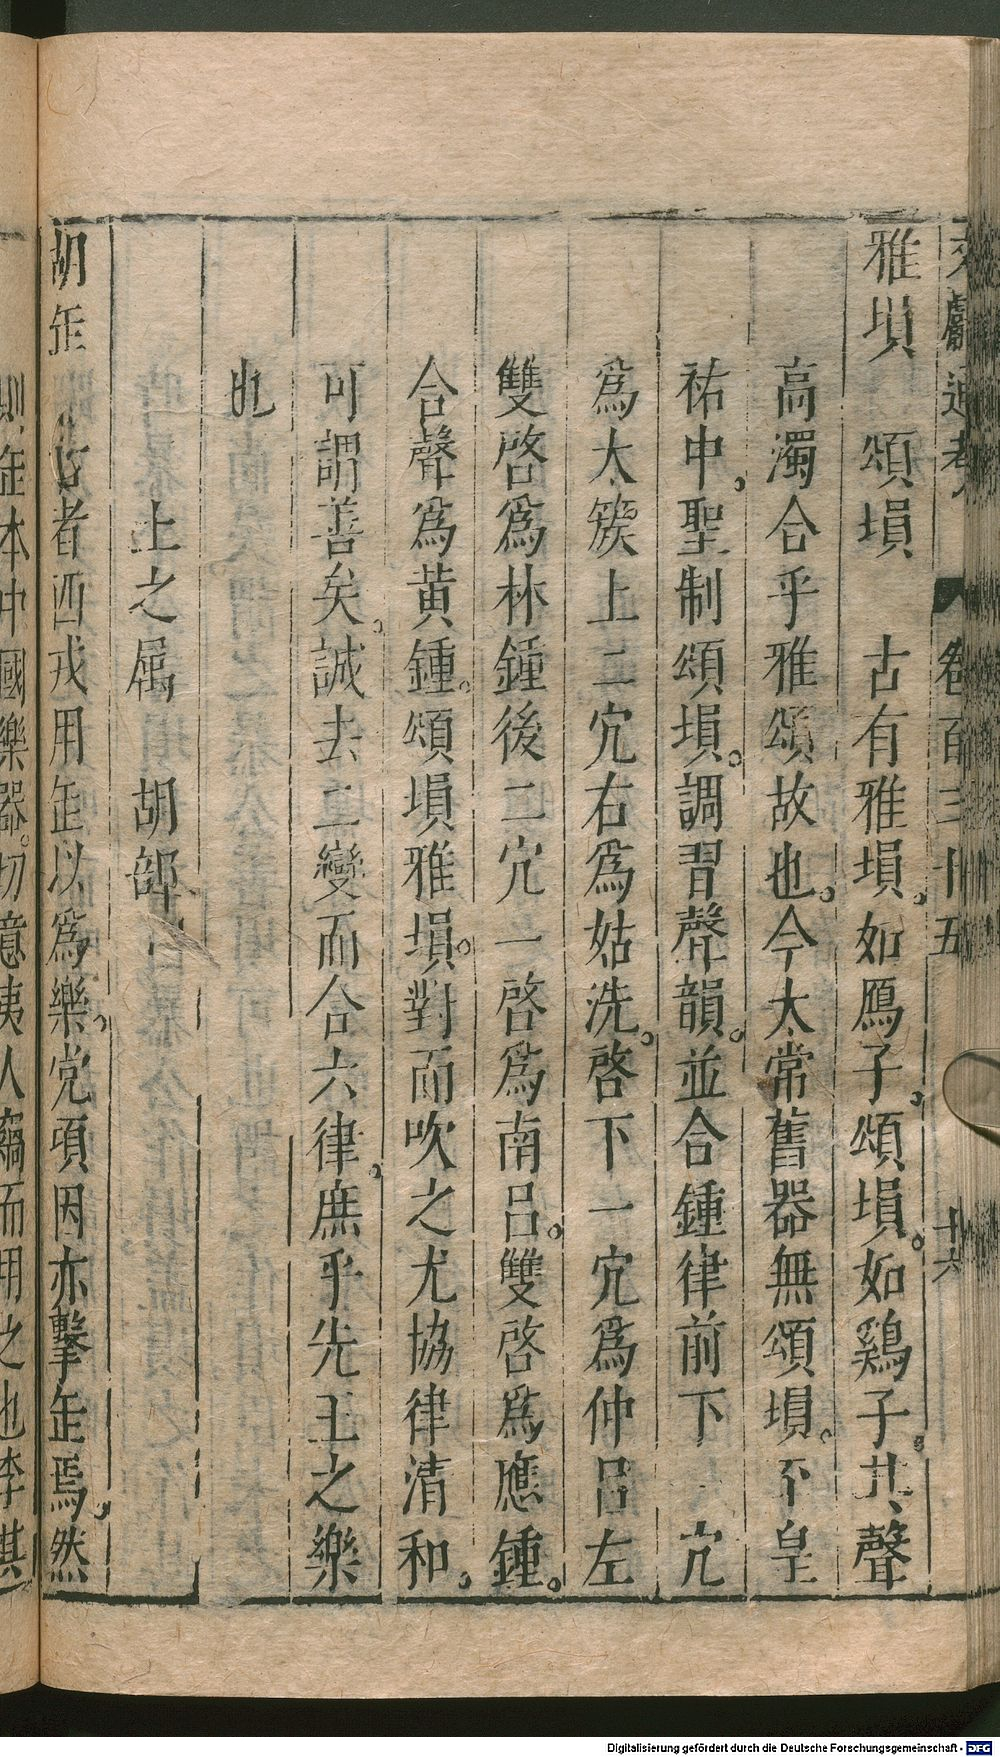 文獻通考 卷百三十五 十六
雅塤 頌塤 古有雅塤。如鴈子。頌塤。如鷄子。其聲
高濁合乎雅頌故也。今太常舊器無頌塤。不皇
祐中。聖制頌塤。調習聲韻。並合鍾律前下一穴
爲太簇上二穴右爲姑洗。啓下一穴爲仲呂左
雙啓爲林鍾後二穴一啓爲南呂。雙啓爲應鍾。
合聲爲黄鍾。頌塤雅塤。對而吹之尤協律清和。
可謂善矣。誠去二變而合六律。庶乎先王之樂
也
土之屬 胡部
胡缶 古者西戎用缶以爲樂。党項因亦擊缶焉。然
則缶本中國樂器。切意夷人竊而用之也李斯
Digitalisierung gefördert durch die Deutsche Forschungsgemeinschaft - DFG